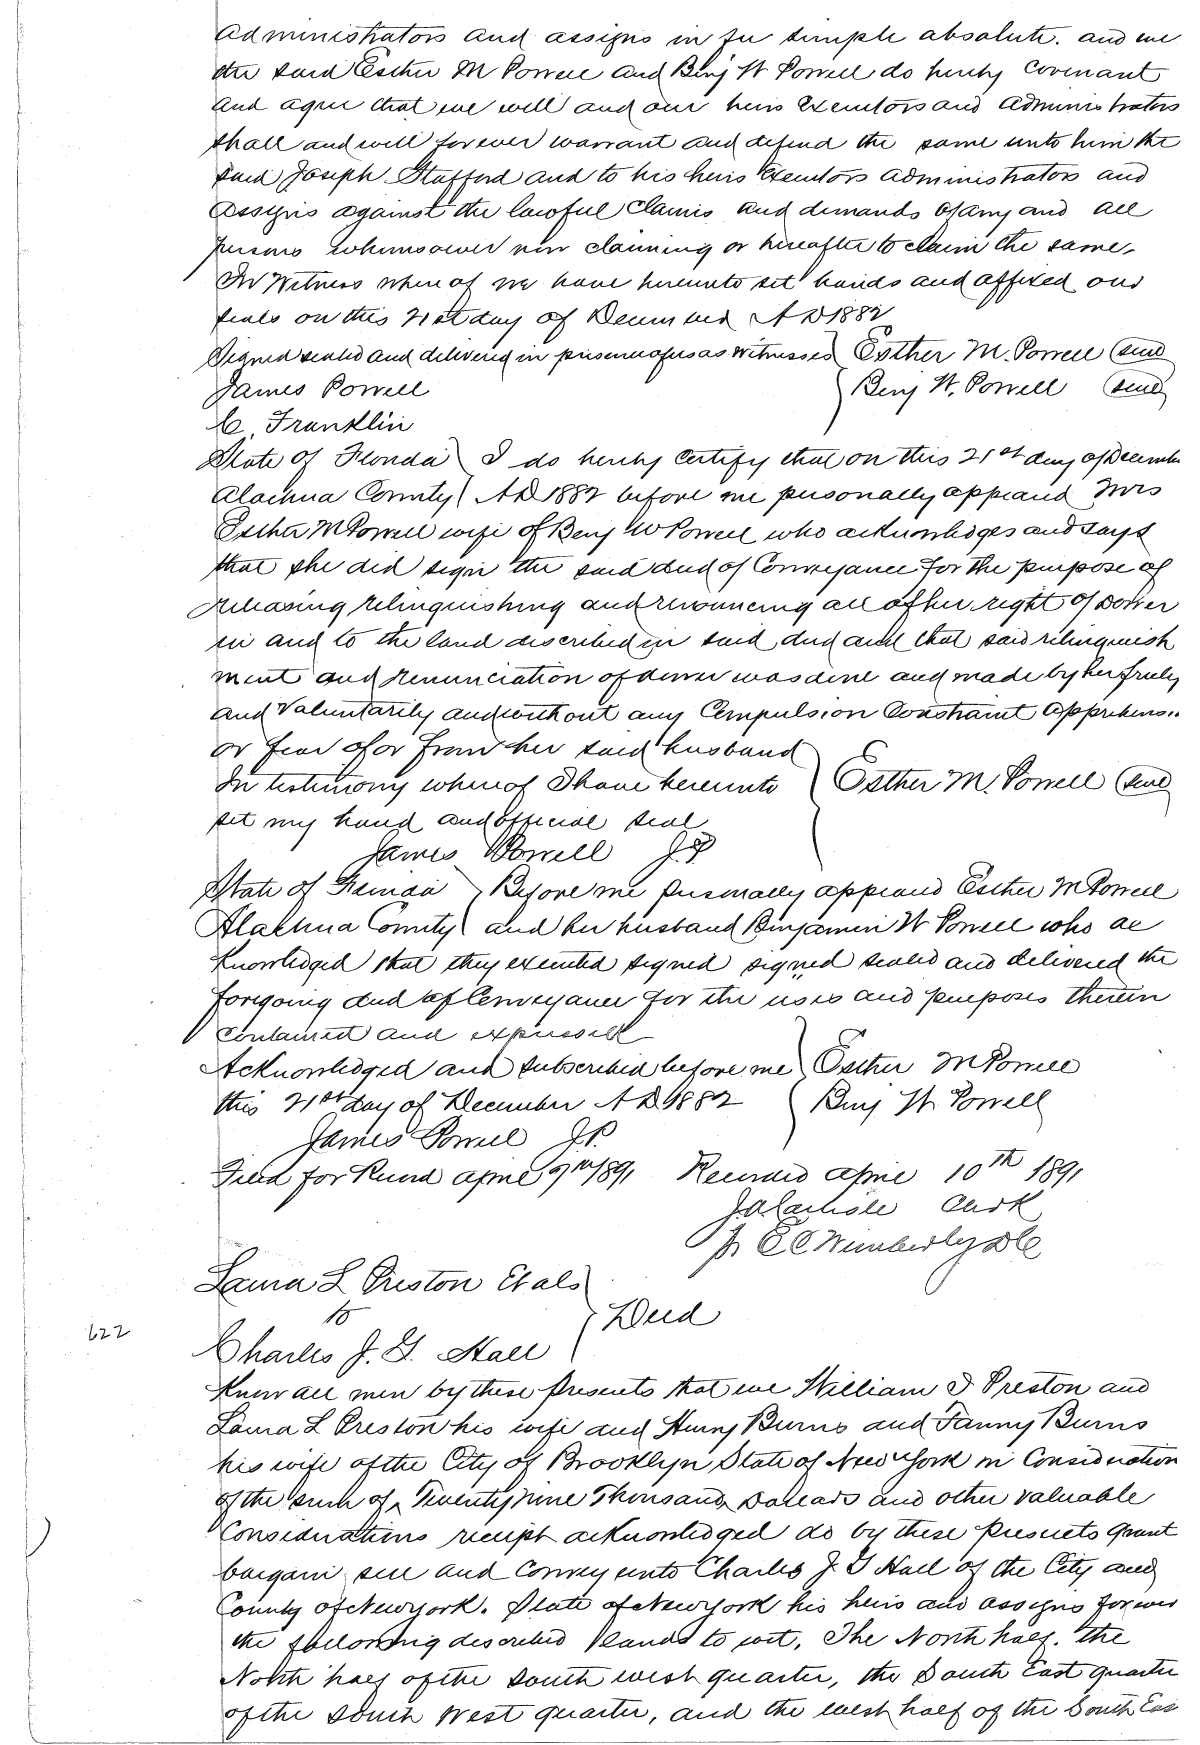 administrators and assigns in fee simple absolute. and we
the said Esther M Powell and Benj W Powell do hereby Covenant
and agree that we will and our heirs Executors and administrators
shall and will forever warrant and defend the same unto him the
said Joseph Stafford and to his heirs Executors administrators and
assigns against the lawful claims and demands of any and all
persons whomsoever now claiming or hereafter to claim the same.
In Witness where of we have hereunto set hands and affixed our
seals on this 21st day of December AD 1882
Signed sealed and delivered in presence of us as witnesses Esther M. Powell (seal)
James Powell Benj W. Powell (seal)
C. Franklin
State of Florida I do hereby Certify that on this 21st day of December
Alachua County AD 1882 before me personally appeared Mrs
Esther M Powell wife of Benj W Powell who acknowledges and says
that she did sign the said deed of Conveyance for the purpose of
releasing relinquishing and renouncing all of her right of Dower
in and to the land discribed in said deed and that said relinquish
ment and renunciation of dower was done and made by her freely
and Voluntarily and without any Compulsion Constraint apprehension
or fear of or from her said husband
In testimony where of I have hereunto Esther M. Powell (seal)
set my hand and official seal
James Powell J.P
State of Florida Before me personally appeared Esther M Powell
Alachua County and her husband Benjamin W Powell who ac
Knowledged that they executed signed signed sealed and delivered the
foregoing deed of Conveyance for the uses and purposes therein
contained and expressed
Acknowledged and subscribed before me Esther M Powell
this 21st day of December AD 1882 Benj W. Powell
James Powell J.P.
Filed for Record april 9th 1891 Recorded april 10th 1891
J A Carlisle Clerk
pr E C Wimberly DC
Laura L Preston Et als
to Deed
622
Charles J. G. Hall
Know all men by these Presents that we William I Preston and
Laura L Preston his wife and Henry Burns and Fanny Burns
his wife of the City of Brooklyn State of New York in Consideration
of the sum of Twenty nine Thousand Dollars and other valuable
Considerations receipt acknowledged do by these presents grant
bargain sell and Convey unto Charles J. G Hall of the City and
County of New York. State of New York his heirs and assigns forever
the following discribed lands to wit, The North half. the
North half of the South west quarter, the South East quarter
of the South West quarter, and the west half of the South Eas